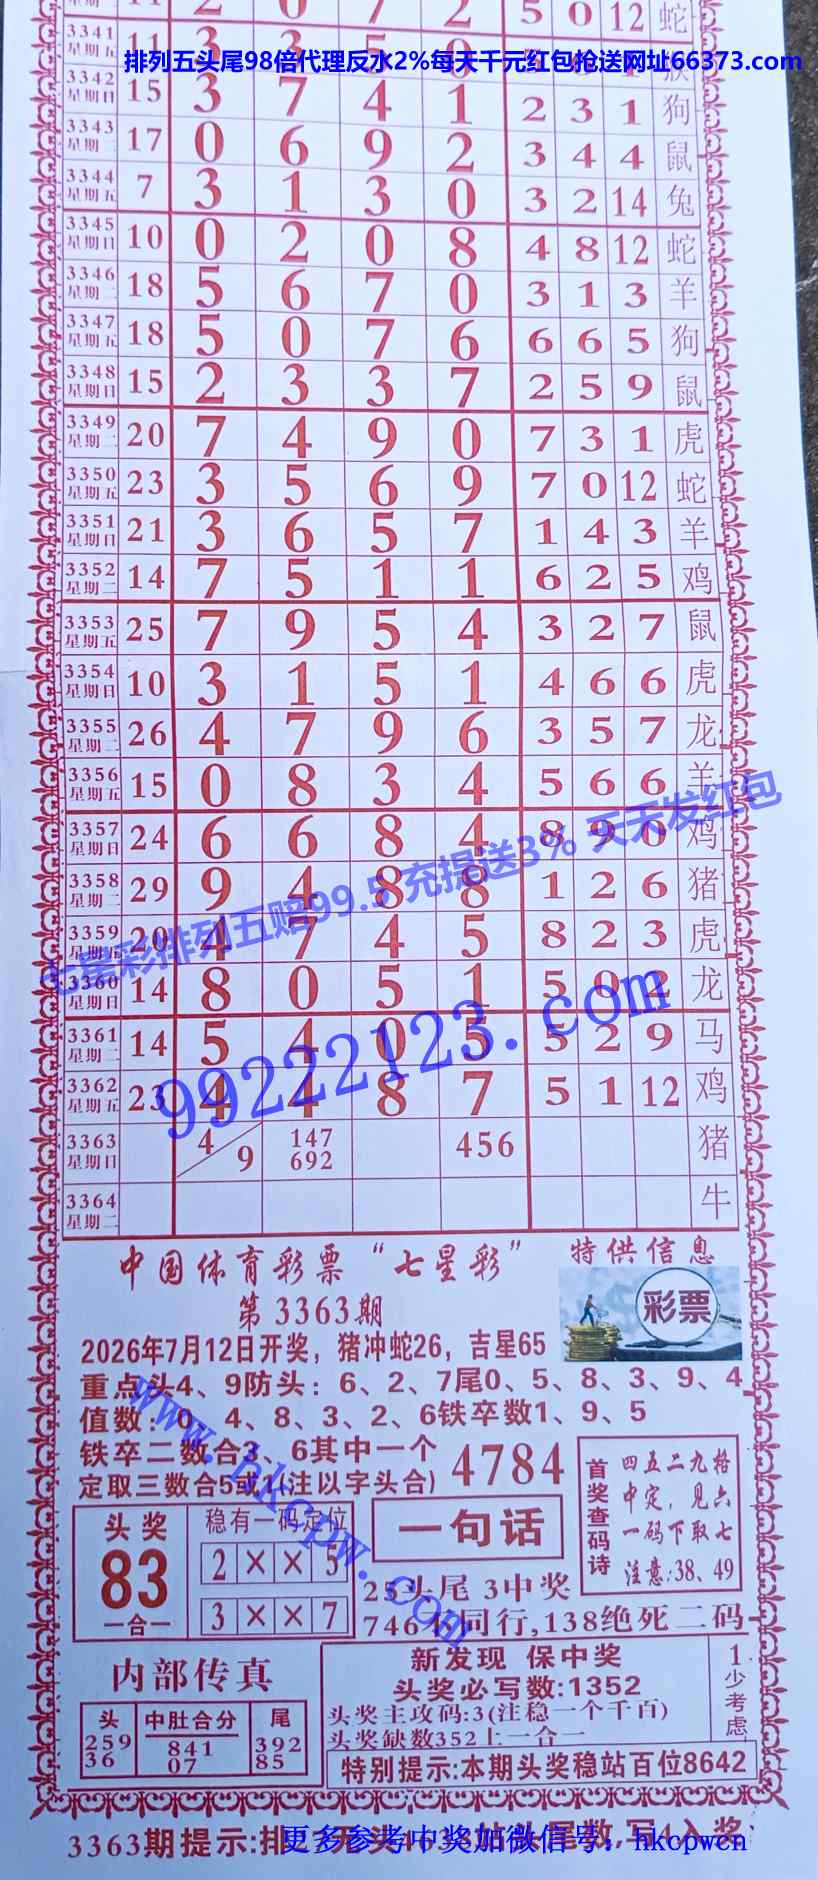 2 0 7 2 5 0 12 蛇
3341 星期五 11 3 3 5 0
排列五头尾98倍代理反水2%每天千元红包抢送网址66373.com
3342 星期日 15 3 7 4 1 2 3 1 狗
3343 星期二 17 0 6 9 2 3 4 4 鼠
3344 星期五 7 3 1 3 0 3 2 14 兔
3345 星期日 10 0 2 0 8 4 8 12 蛇
3346 星期二 18 5 6 7 0 3 1 3 羊
3347 星期五 18 5 0 7 6 6 6 5 狗
3348 星期日 15 2 3 3 7 2 5 9 鼠
3349 星期二 20 7 4 9 0 7 3 1 虎
3350 星期五 23 3 5 6 9 7 0 12 蛇
3351 星期日 21 3 6 5 7 1 4 3 羊
3352 星期二 14 7 5 1 1 6 2 5 鸡
3353 星期五 25 7 9 5 4 3 2 7 鼠
3354 星期日 10 3 1 5 1 4 6 6 虎
3355 星期二 26 4 7 9 6 3 5 7 龙
3356 星期五 15 0 8 3 4 5 6 6 羊
3357 星期日 24 6 6 8 4 8 9 0 鸡
3358 星期二 29 9 4 8 8 1 2 6 猪
七星彩排列五赔99.5 充提送3% 天天发红包
3359 星期五 20 4 7 4 5 8 2 3 虎
3360 星期日 14 8 0 5 1 5 0 2 龙
3361 星期二 14 5 4 0 5 5 2 9 马
99222123.com
3362 星期五 23 4 4 8 7 5 1 12 鸡
3363 星期日 4/9 147 692 456 猪
3364 星期二 牛
中国体育彩票“七星彩” 特供信息
第3363期
彩票
2026年7月12日开奖，猪冲蛇26，吉星65
重点头4、9防头：6、2、7尾0、5、8、3、9、4
值数：0、4、8、3、2、6铁卒数1、9、5
铁卒二数合3、6其中一个
定取三数合5或1(注以字头合)
4784
www.hkcpw.com
首奖查码诗
四五二九格
中定，见六
一码下取七
注意:38、49
头奖
83
一合一
稳有一码定位
2××5
3××7
一句话
25头尾 3中奖
746不同行,138绝死二码
内部传真
头 259 36
中肚合分 841 07
尾 392 85
新发现 保中奖
头奖必写数:1352
头奖主攻码:3(注稳一个千百)
头奖缺数352上一合一
1少考虑
特别提示:本期头奖稳站百位8642
3363期提示:排
更多参考中奖加微信号：hkcpwcn